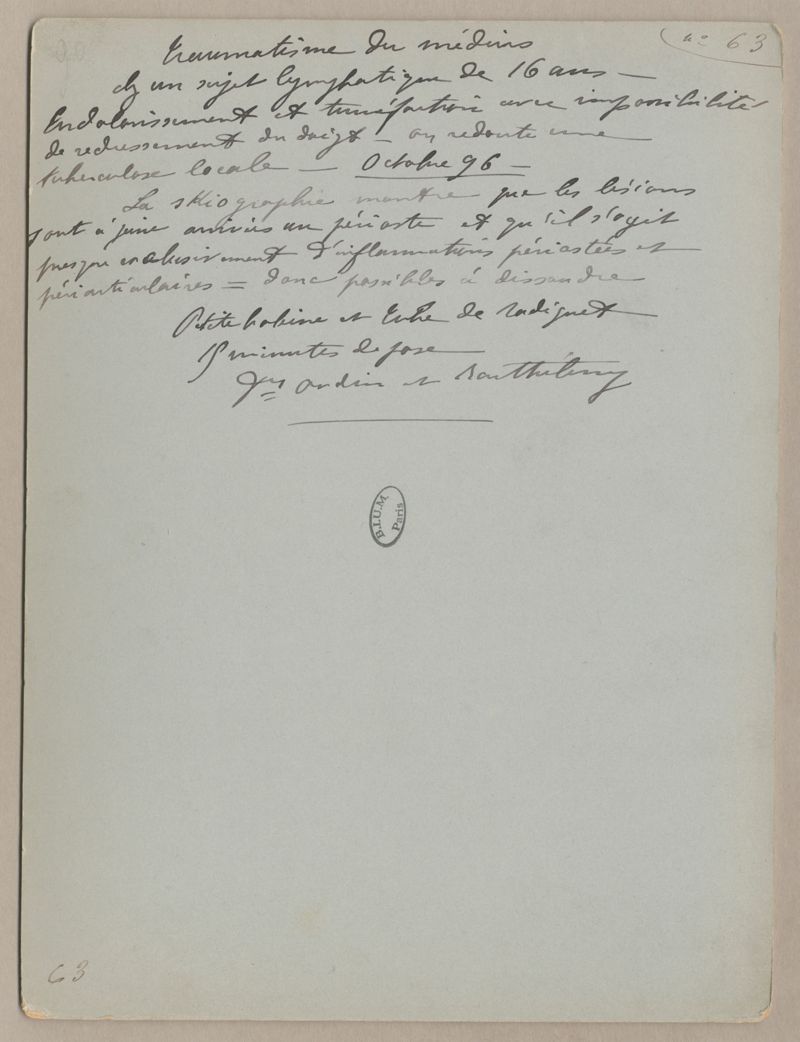 nº 63
Traumatisme du médius
chez un sujet lymphatique de 16 ans —
Endolorissement et tuméfaction avec impossibilité
de redressement du doigt — on redoute une
tuberculose locale — Octobre 96 —
La skiographie montre que les lésions
sont à peine arrivées au périoste et qu'il s'agit
presque exclusivement d'inflammations périostées et
périarticulaires = donc possibles à dissoudre
Petite bobine et tube de Radiguet
5 minutes de pose
Drs Oudin et Barthélemy
B.I.U.M.
Paris
63